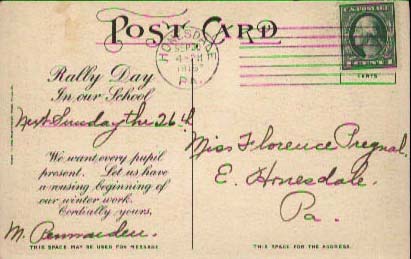 POST CARD
HONESDALE
SEP 20
PA.
Rally Day
In our School
Next Sunday the 26th
We want every pupil
present. Let us have
a rousing beginning of
our winter work.
Cordially yours,
M.
THIS SPACE MAY BE USED FOR MESSAGE
Miss Florence Pregnal.
E. Honesdale.
Pa.
THIS SPACE FOR THE ADDRESS.